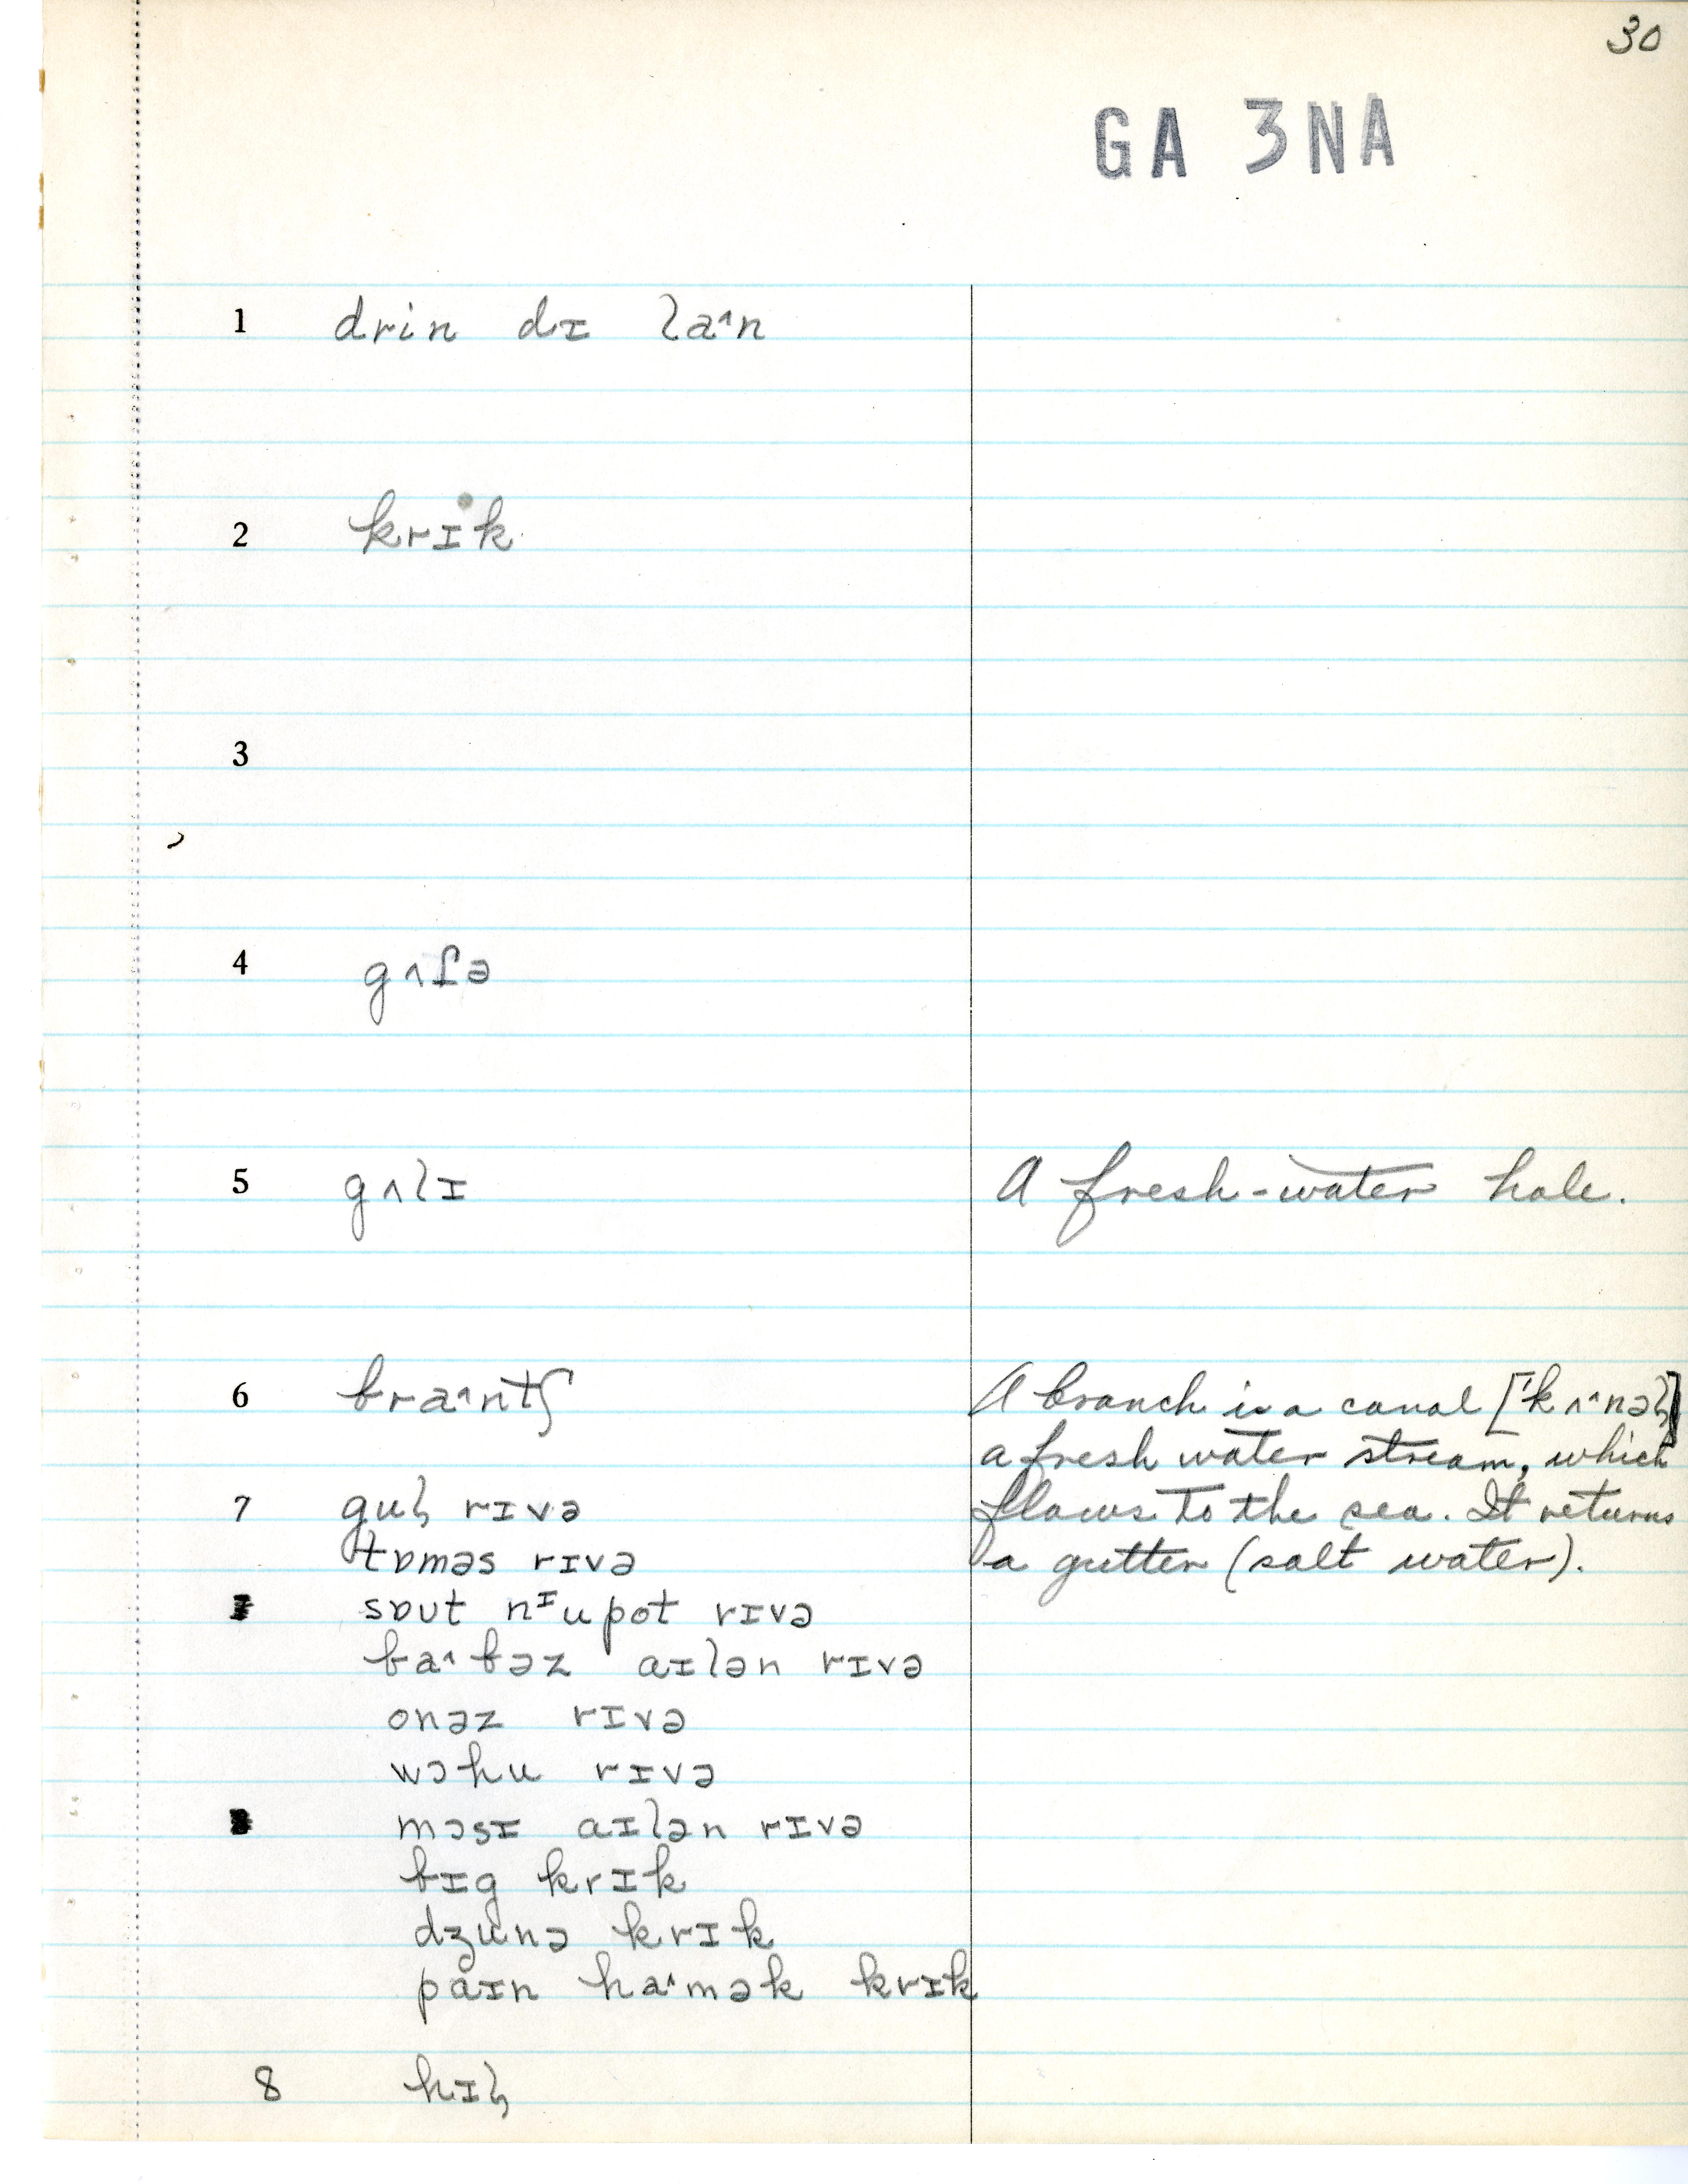 30
GA 3NA
1 drin dɪ la˄n
2 krɪk
3
4 gʌʃə
5 gʌlɪ A fresh-water hole.
6 bra˄ntʃ A branch is a canal ['kʌ˄nəɫ]
a fresh water stream, which
7 guɫ rɪvə flows to the sea. It returns
tɒməs rɪvə a gutter (salt water).
sɒut nᶦupot rɪvə
ba˄bəz aɪlən rɪvə
onəz rɪvə
wɔhu rɪvə
mɔsɪ aɪlən rɪvə
bɪg krɪk
dʒunə krɪk
paɪn ha˄mək krɪk
8 hɪɫ